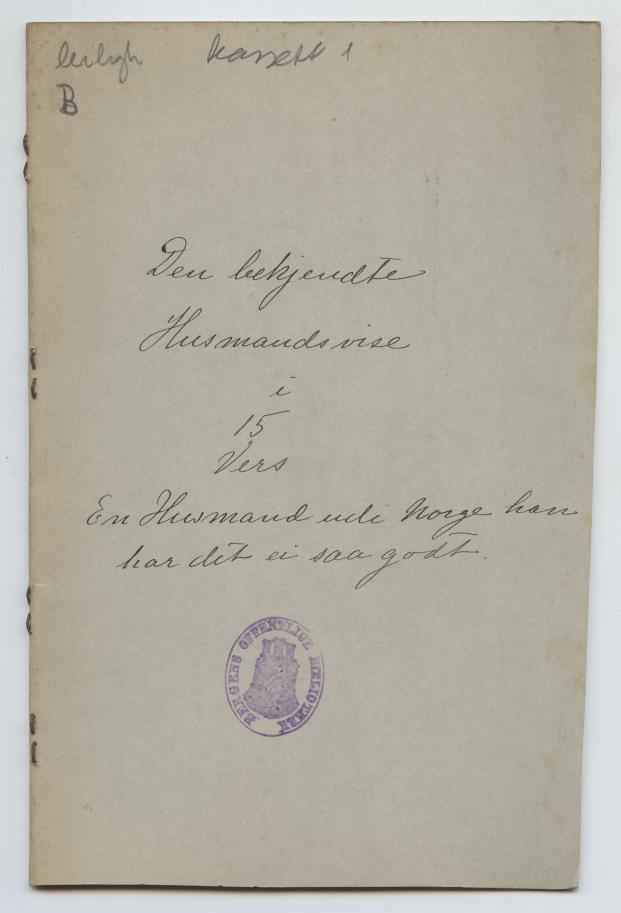 leiligh kassett 1
B
Den bekjendte
Husmandsvise
i
15
Vers
En Husmand udi Norge han
har det ei saa godt.
BERGENS OFFENTLIGE BIBLIOTHEK